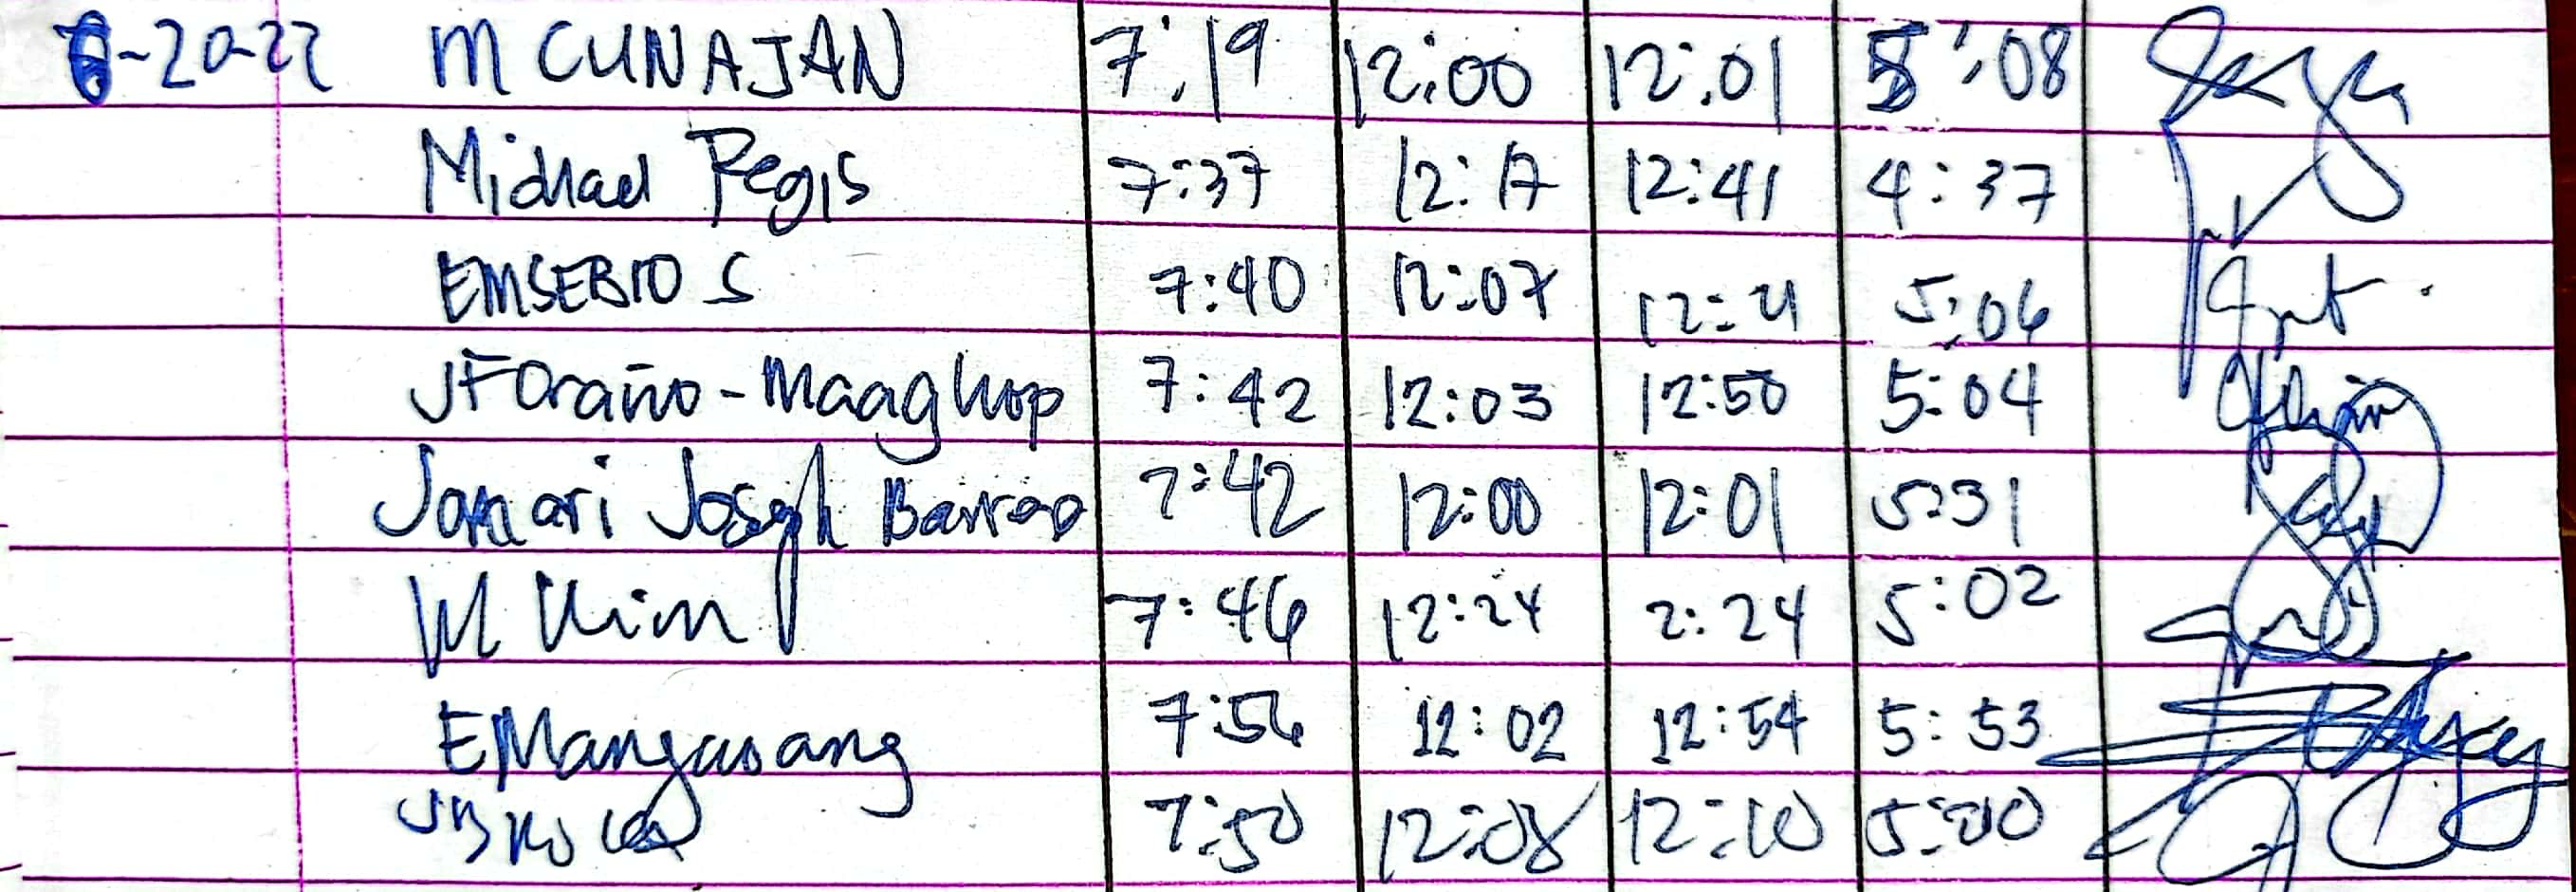 6-20-22 M CUNAJAN 7:19 12:00 12:01 5:08
Michael Regis 7:37 12:17 12:41 4:37
EMSEBIO S 7:40 12:07 12:21 5:06
JFOraño-Maaghop 7:42 12:03 12:50 5:04
Jomari Joseph Barrao 7:42 12:00 12:01 5:31
7:46 12:24 2:24 5:02
EMangasang 7:56 12:02 12:54 5:53
7:50 12:08 12:10 5:00